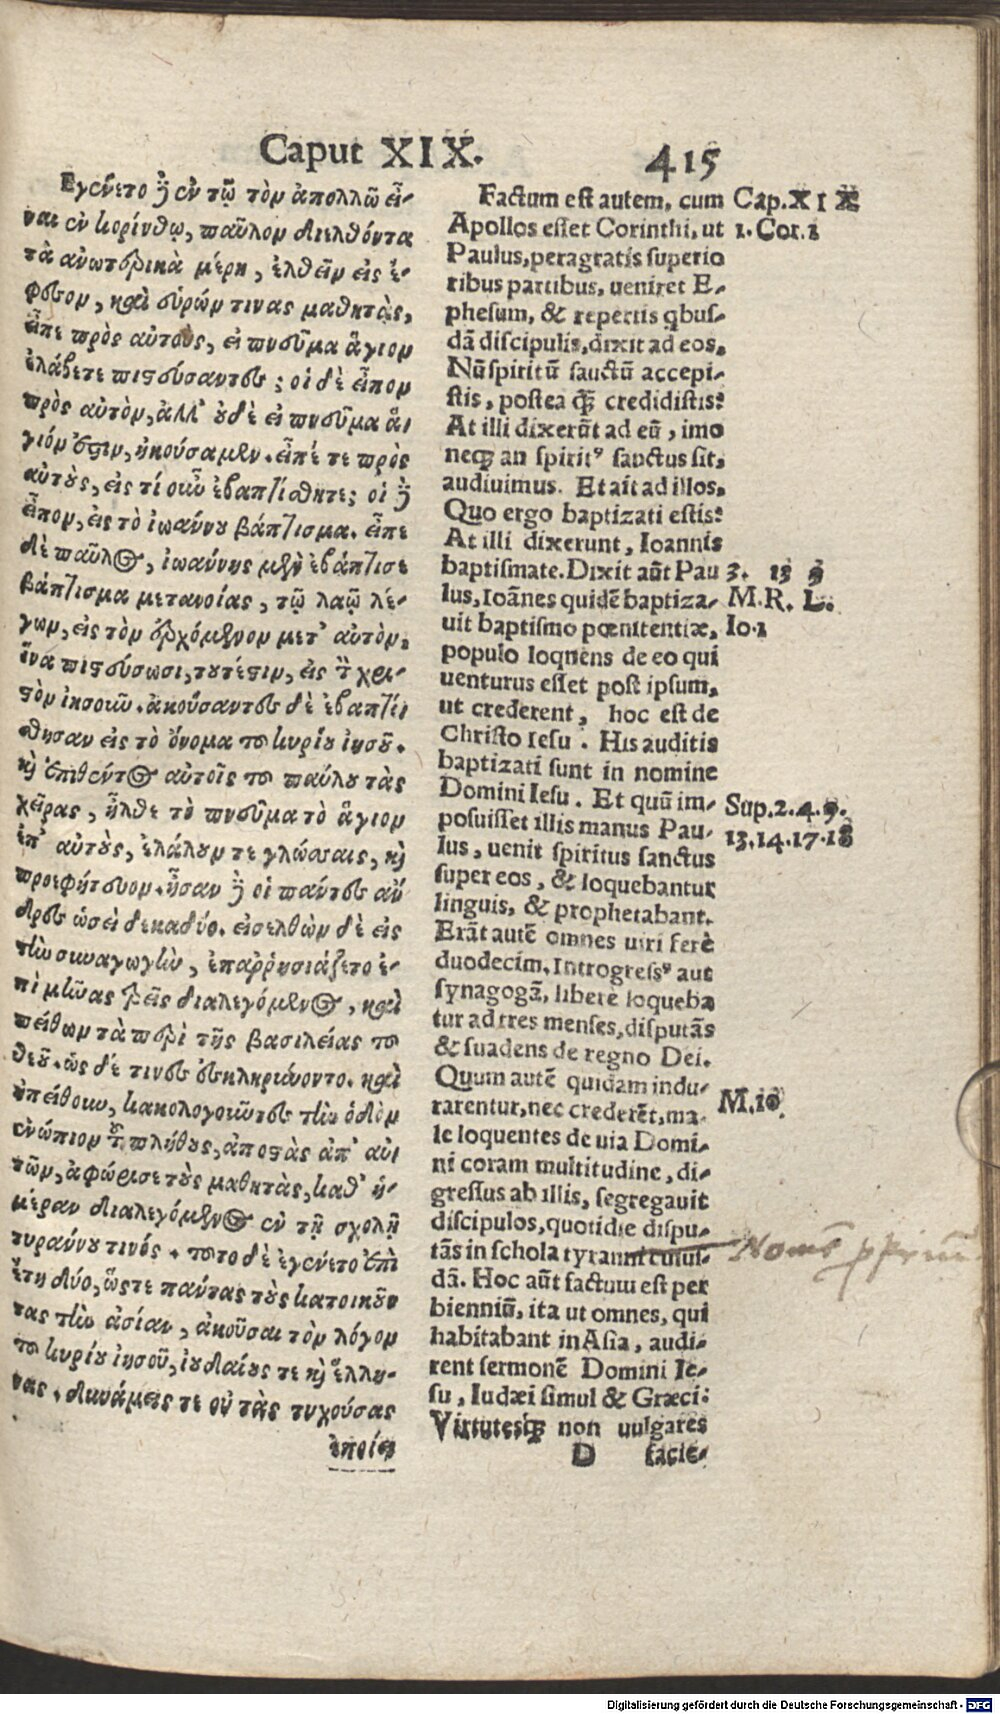 Caput XIX.
415
Εγένετο ἢ ἐν τῷ τὸν ἀπολλῶ εἶ-
ναι ἐν κορίνθῳ, παῦλον διελθόντα
τὰ ἀνωτερικὰ μέρη, ἐλθεῖν εἰς ἔ-
φεσον, καὶ εὑρών τινας μαθητὰς,
εἶπε πρὸς αὐτοὺς, εἰ πνεῦμα ἅγιον
ἐλάβετε πιστεύσαντες; οἱ δὲ εἶπον
πρὸς αὐτὸν, ἀλλ' οὐδὲ εἰ πνεῦμα ἅ-
γιόν ἐστιν, ἠκούσαμεν. εἶπέ τε πρὸς
αὐτοὺς, εἰς τί οὖν ἐβαπτίσθητε; οἱ ἢ
εἶπον, εἰς τὸ ἰωάννου βάπτισμα. εἶπε
δὲ παῦλος, ἰωάννης μὲν ἐβάπτισε
βάπτισμα μετανοίας, τῷ λαῷ λέ-
γων, εἰς τὸν ἐρχόμενον μετ' αὐτὸν,
ἵνα πιστεύσωσι, τουτέστιν, εἰς τὸν χρι-
στὸν ἰησοῦν. ἀκούσαντες δὲ ἐβαπτί-
σθησαν εἰς τὸ ὄνομα τοῦ κυρίου ἰησοῦ.
καὶ ἐπιθέντος αὐτοῖς τοῦ παύλου τὰς
χεῖρας, ἦλθε τὸ πνεῦμα τὸ ἅγιον
ἐπ' αὐτοὺς, ἐλάλουν τε γλώσσαις, καὶ
προεφήτευον. ἦσαν δὲ οἱ πάντες ἄν
δρες ὡσεὶ δεκαδύο. εἰσελθὼν δὲ εἰς
τὴν συναγωγὴν, ἐπαῤῥησιάζετο ἐ-
πὶ μῆνας τρεῖς διαλεγόμενος, καὶ
πείθων τὰ περὶ τῆς βασιλείας τοῦ
θεοῦ. ὡς δέ τινες ἐσκληρύνοντο. καὶ
ἠπείθουν, κακολογοῦντες τὴν ὁδὸν
ἐνώπιον τοῦ πλήθους, ἀποστὰς ἀπ' αὐ-
τῶν, ἀφώρισε τοὺς μαθητὰς, καθ' ἡ-
μέραν διαλεγόμενος ἐν τῇ σχολῇ
τυράννου τινός. τοῦτο δὲ ἐγένετο ἐπὶ
ἔτη δύο, ὥστε πάντας τοὺς κατοικοῦν
τας τὴν ἀσίαν, ἀκοῦσαι τὸν λόγον
τοῦ κυρίου ἰησοῦ, ἰουδαίους τε καὶ ἕλλη-
νας. δυνάμεις τε οὐ τὰς τυχούσας
ἐποίει
Factum est autem, cum
Apollos esset Corinthi, ut
Paulus, peragratis superio
ribus partibus, ueniret E-
phesum, & repertis qbus-
dā discipulis, dixit ad eos,
Nū spiritū sanctū accepi-
stis, postea q̄ credidistis?
At illi dixerūt ad eū, imo
neq; an spirit⁹ sanctus sit,
audiuimus. Et ait ad illos,
Quo ergo baptizati estis?
At illi dixerunt, Ioannis
baptismate. Dixit aūt Pau
lus, Ioānes quidē baptiza-
uit baptismo pœnitentiæ,
populo loquens de eo qui
uenturus esset post ipsum,
ut crederent, hoc est de
Christo Iesu. His auditis
baptizati sunt in nomine
Domini Iesu. Et quū im-
posuisset illis manus Pau-
lus, uenit spiritus sanctus
super eos, & loquebantur
linguis, & prophetabant.
Erāt autē omnes uiri ferè
duodecim. Introgress⁹ aut
synagogā, libere loqueba
tur ad tres menses, disputās
& suadens de regno Dei.
Quum autē quidam indu-
rarentur, nec crederēt, ma-
le loquentes de uia Domi-
ni coram multitudine, di-
gressus ab illis, segregauit
discipulos, quotidie dispu-
tās in schola tyranni cuius-
dā. Hoc aūt factum est per
bienniū, ita ut omnes, qui
habitabant in Asia, audi-
rent sermonē Domini Ie-
su, Iudæi simul & Græci:
Virtutesq; non uulgares
D facie-
Cap. XIX
1. Cor. 1
3. 13 9
M. R. L.
Io. 1
Sup. 2. 4. 9.
13. 14. 17. 18
M. 10.
Digitalisierung gefördert durch die Deutsche Forschungsgemeinschaft - DFG